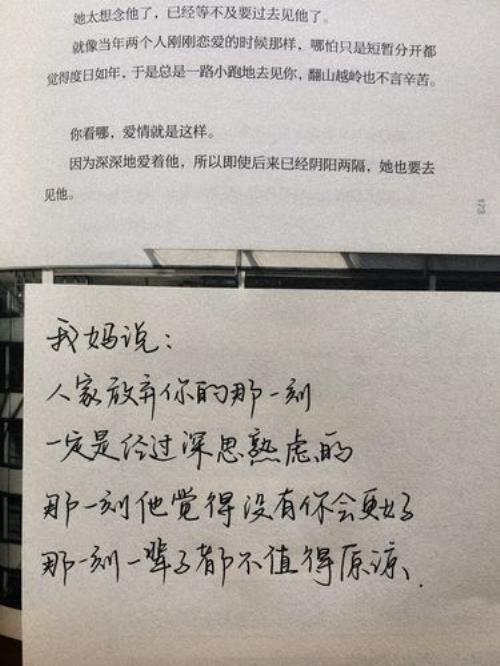 她太想念他了，已经等不及要过去见他了。
就像当年两个人刚刚恋爱的时候那样，哪怕只是短暂分开都
觉得度日如年，于是总是一路小跑地去见你，翻山越岭也不言辛苦。
你看哪，爱情就是这样。
因为深深地爱着他，所以即使后来已经阴阳两隔，她也要去
见他。
173
我妈说：
人家放弃你的那一刻
一定是经过深思熟虑的
那一刻他觉得没有你会更好
那一刻一辈子都不值得原谅、